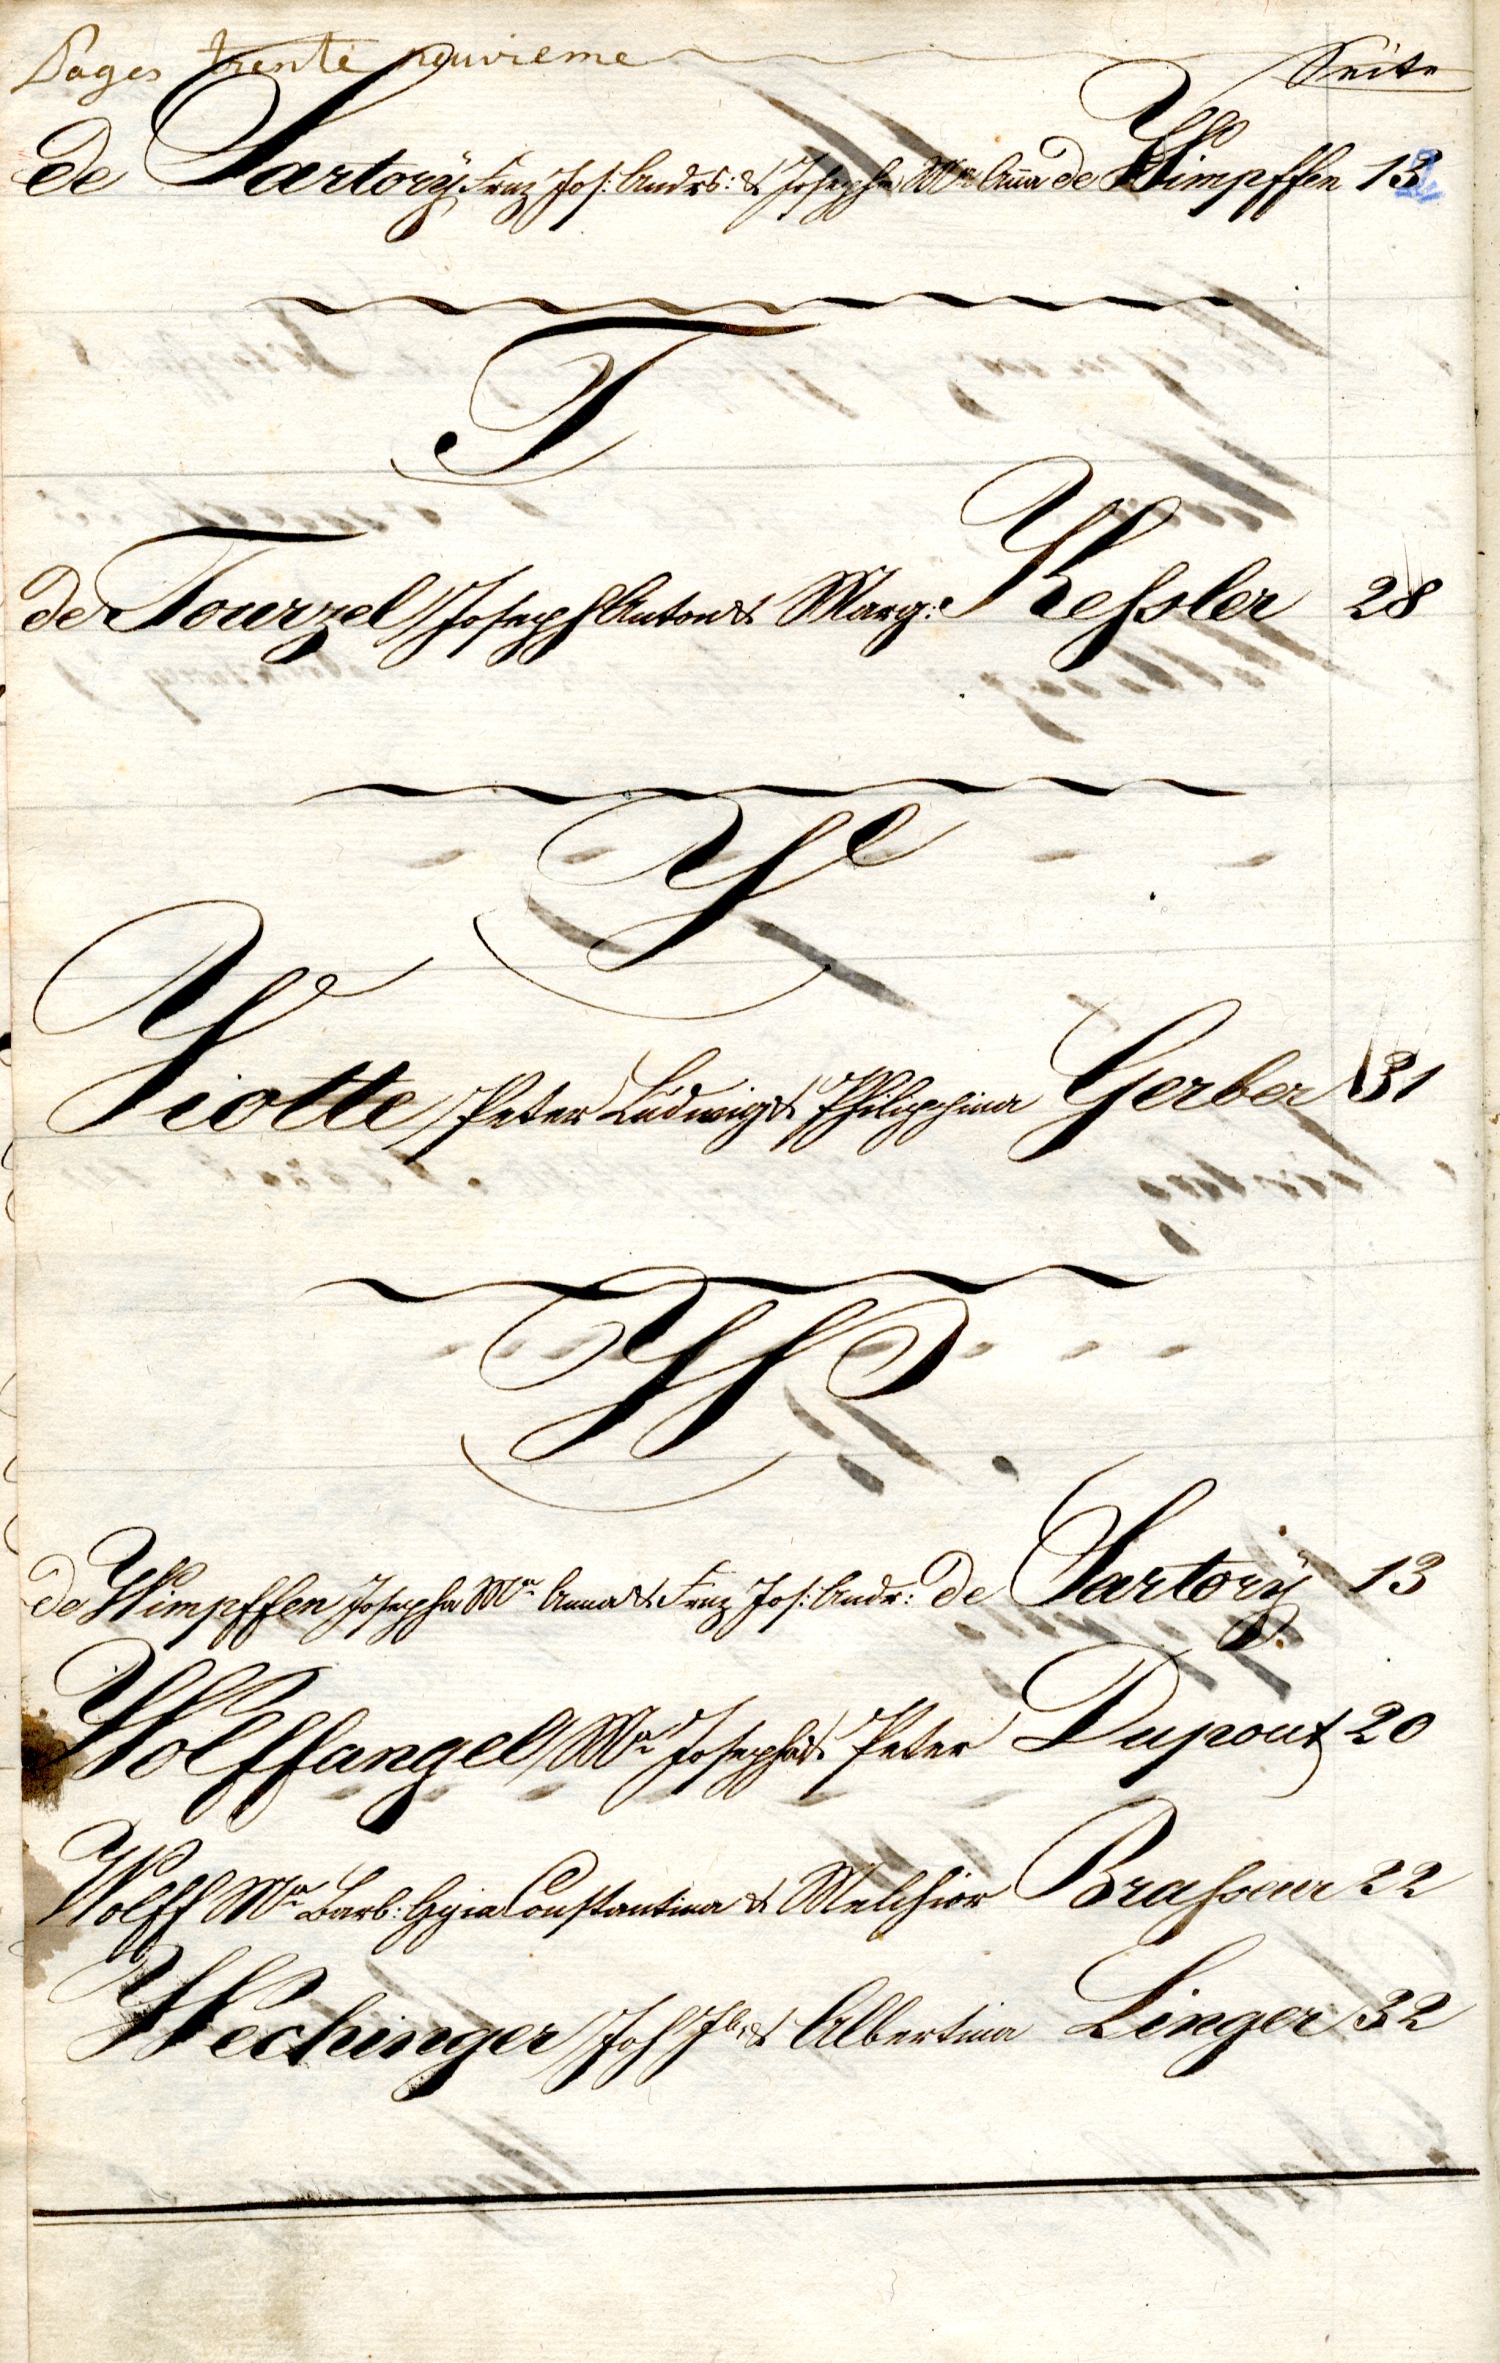 Pages trente neuvieme Seite
de Sartorÿ Frnz Jos: Andrs: & Josepha Mra Aña de Wimpffen 13
T
de Tourzel Joseph Anton & Marg: Kessler 28
V
Viotte Peter Ludwig & Philippina Gerber 31
W
de Wimpffen Josepha Mra Anna & Frnz Jos: Andr: de Sartorÿ 13
Wolffangel Mra Josepha & Peter Dupont 20
Wolff Mra Barb: Constantina & Melchior Brasseur 22
Wechinger Joh & Albertina Linger 32